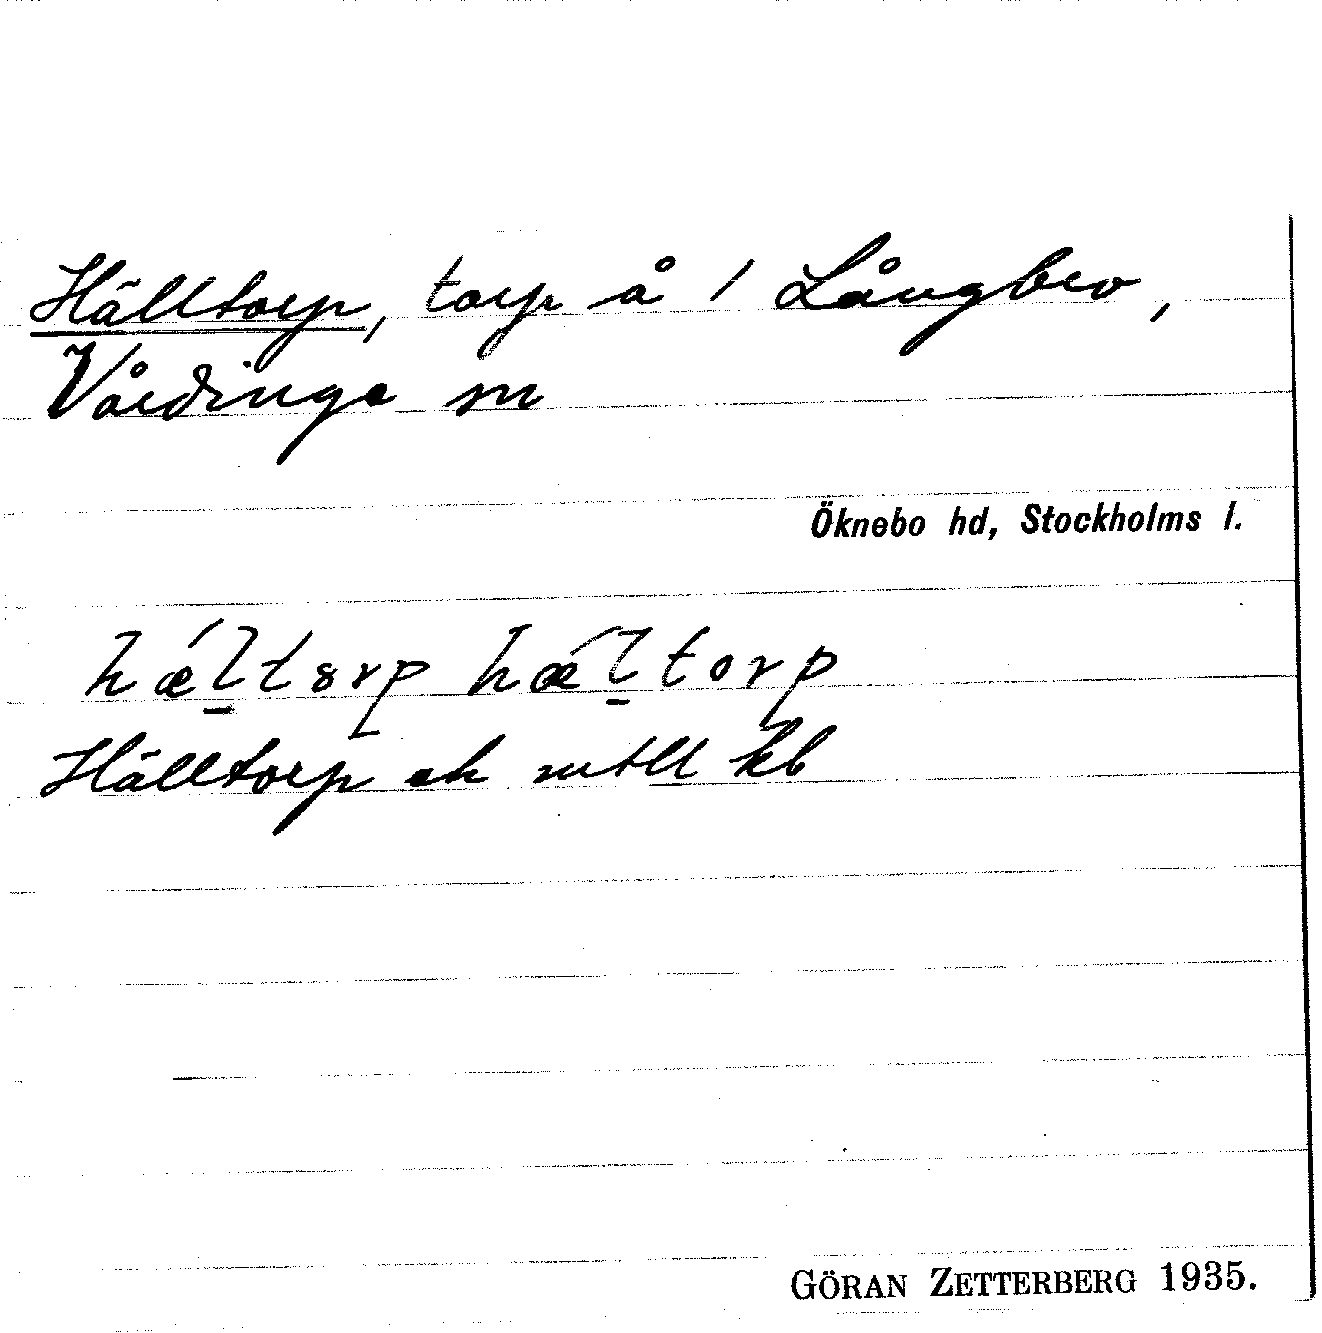 Hälltorp, torp å 1 Långbro,
Vårdinge sn
Öknebo hd, Stockholms l.
hǽltorp hǽltorp
Hälltorp ek mtll kb
GÖRAN ZETTERBERG 1935.